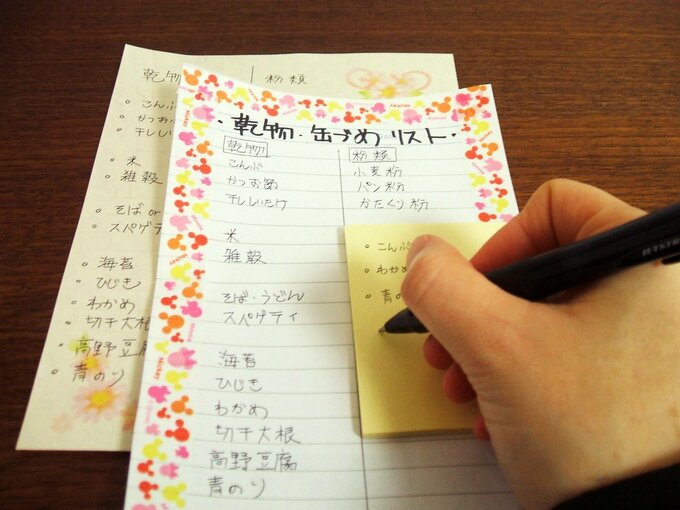 乾物・缶づめ リスト
乾物
こんぶ
かつお節
干ししいたけ
米
雑穀
そば・うどん
スパゲティ
海苔
ひじき
わかめ
切干大根
高野豆腐
青のり
粉類
小麦粉
パン粉
かたくり粉
。こんぶ
。わかめ
。青の
乾物
粉類
。こんぶ
。かつお
。干ししい
。米
。雑穀
。そば or
。スパゲティ
。海苔
。ひじき
。わかめ
。切干大根
。高野豆腐
。青のり